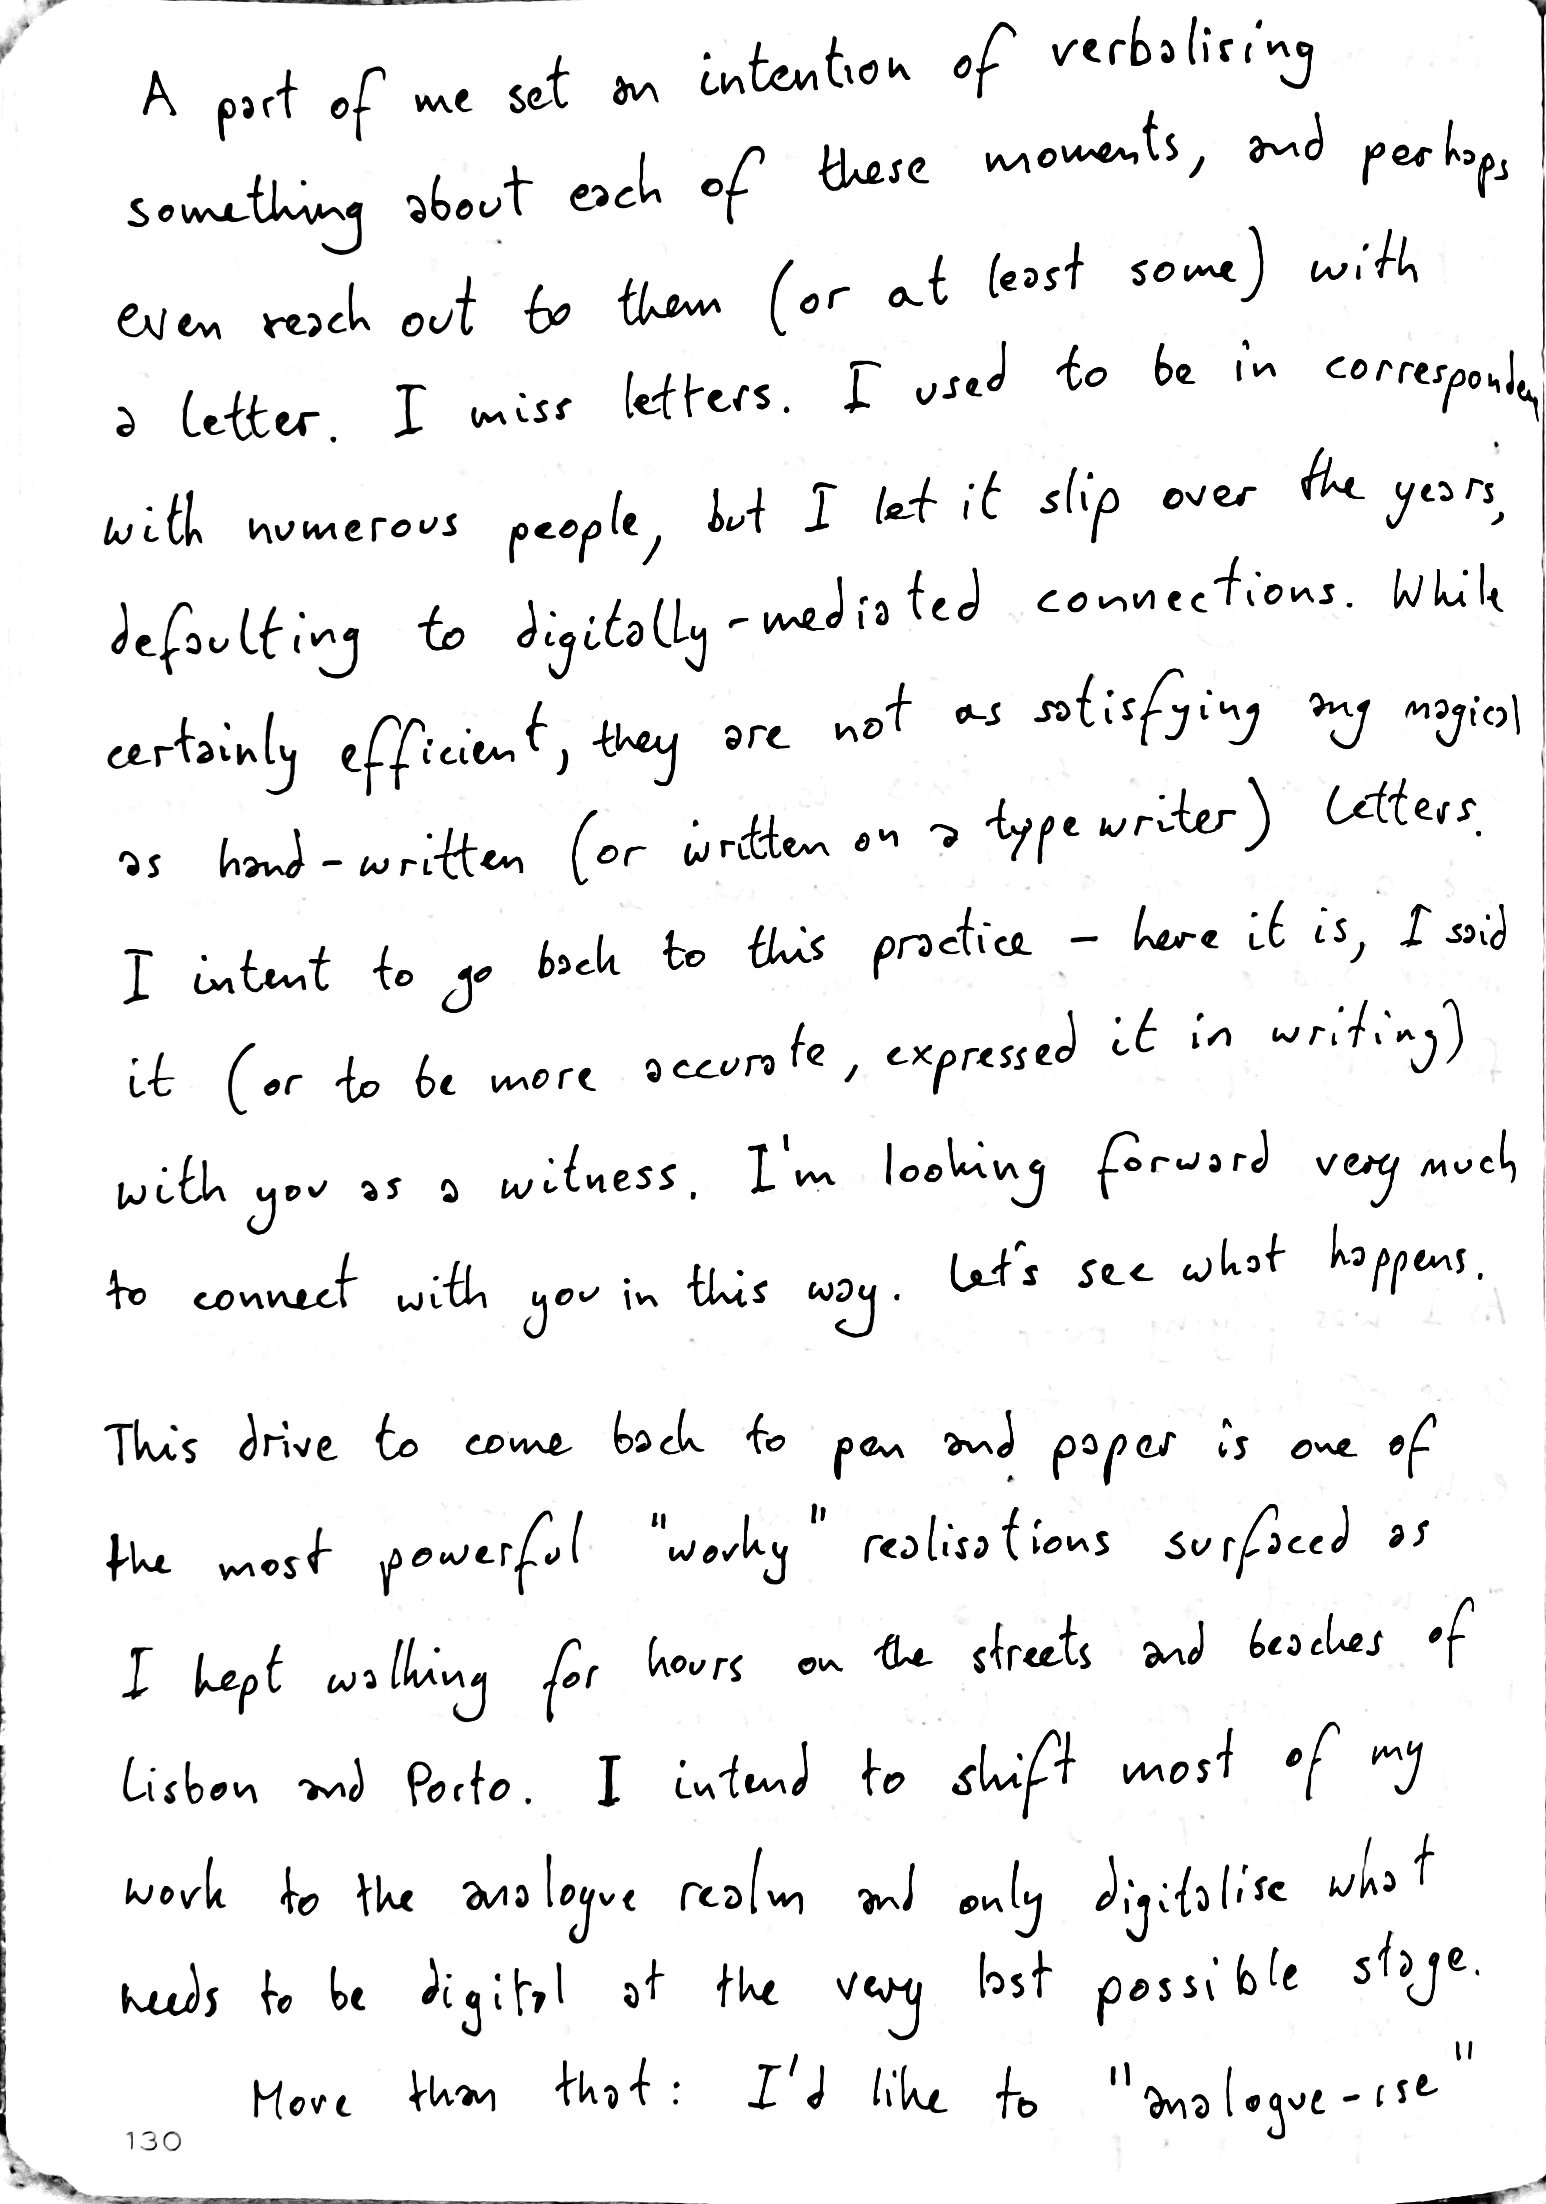 A part of me set an intention of verbalising
something about each of these moments, and perhaps
even reach out to them (or at least some) with
a letter. I miss letters. I used to be in
with numerous people, but I let it slip over the years,
defaulting to digitally-mediated connections. While
certainly efficient, they are not as satisfying ang magical
as hand-written (or written on a typewriter) letters.
I intent to go back to this practice – here it is, I said
it (or to be more accurate, expressed it in writing)
with you as a witness. I'm looking forward very much
to connect with you in this way. Let's see what happens.
This drive to come back to pen and paper is one of
the most powerful "worky" realisations surfaced as
I kept walking for hours on the streets and beaches of
Lisbon and Porto. I intend to shift most of my
work to the analogue realm and only digitalise what
needs to be digital at the very last possible stage.
More than that: I'd like to "analogue-ise"
130